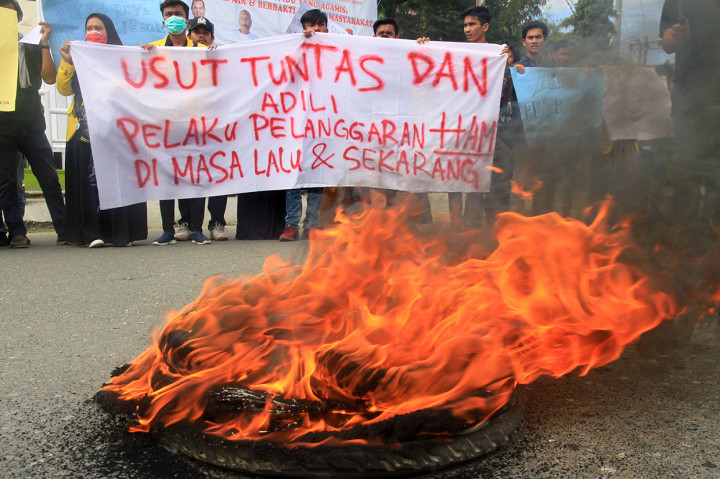 AIR & BERBAKTI UNTUK MASYARAKAT
USUT TUNTAS DAN
ADILI
PELAKU PELANGGARAN HAM
DI MASA LALU & SEKARANG